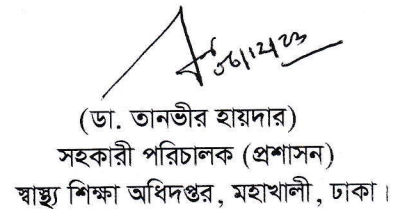 (ডা. তানভীর হায়দার)
সহকারী পরিচালক (প্রশাসন)
স্বাস্থ্য শিক্ষা অধিদপ্তর, মহাখালী, ঢাকা।